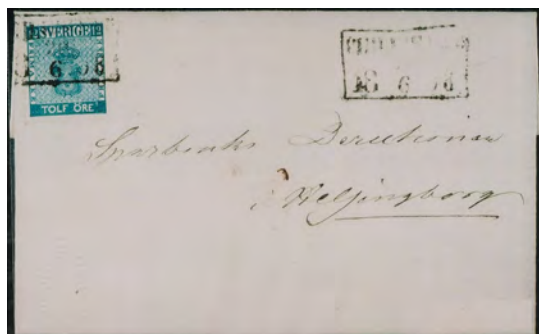 12 SVERIGE 12
TOLF ÖRE
6
18 6
Sparbanks Derectionen
i Helsingborg